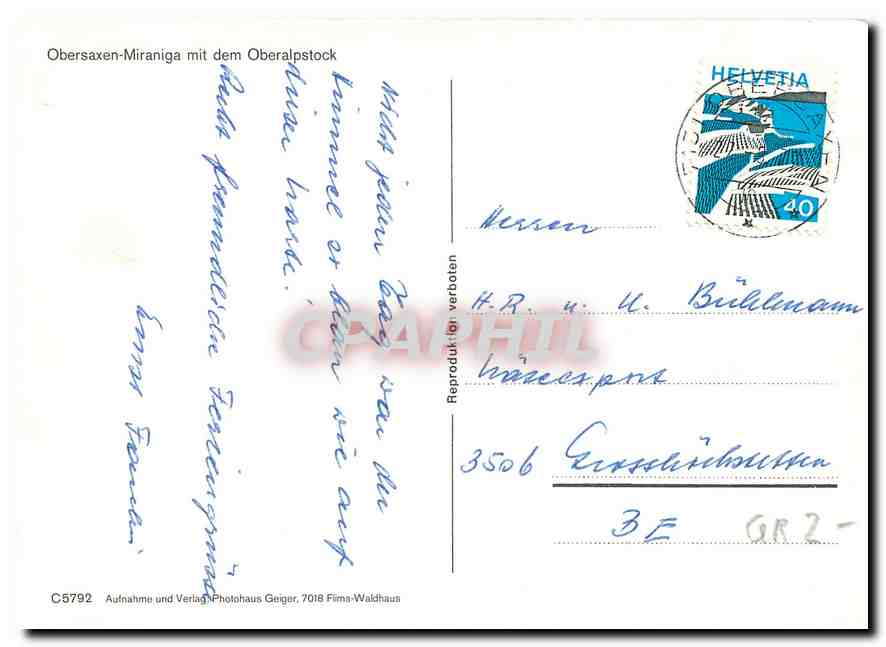 Obersaxen-Miraniga mit dem Oberalpstock
Nicht jeden Tag war der
Himmel so blau wie auf
dieser Karte.
Recht freundliche Feriengrüsse
Ernst
HELVETIA
40
Reproduktion verboten
Herren
H.R. u. U. Bühlmann
Käseexport
3506 Grosshöchstetten
BE
GR 2-
CPAPHIL
C5792 Aufnahme und Verlag: Photohaus Geiger, 7018 Flims-Waldhaus